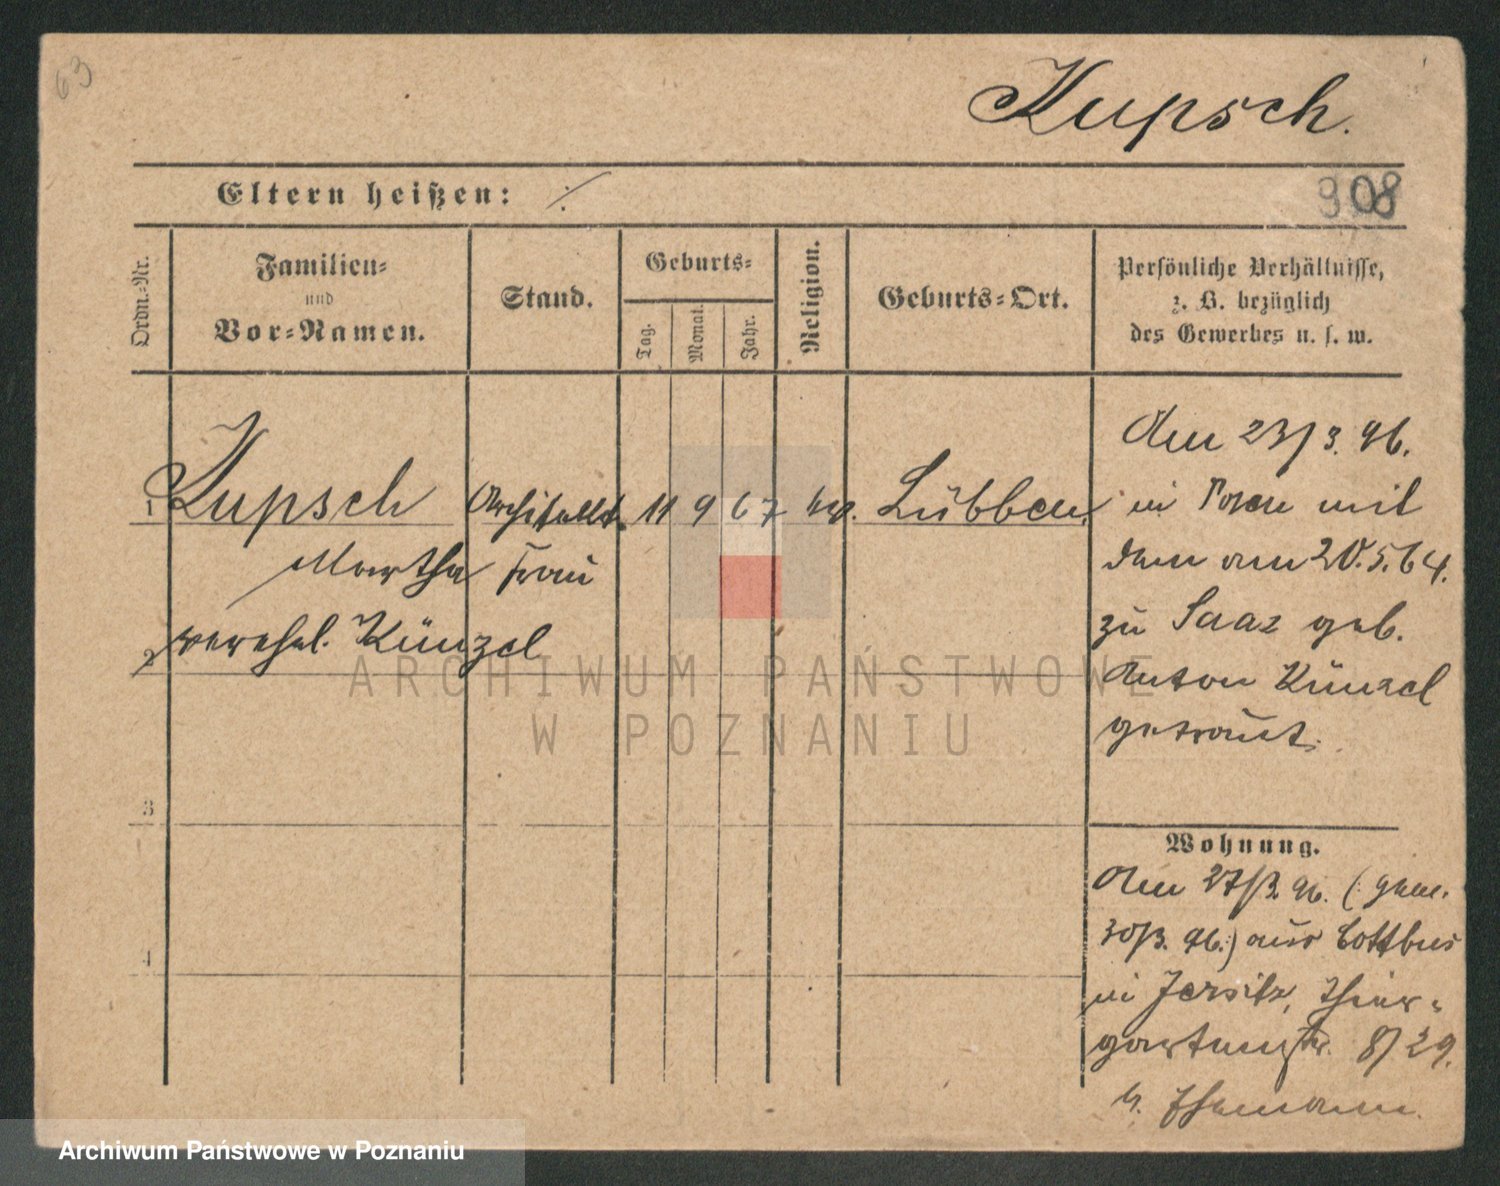 63
Kupsch.
Eltern heißen: ./.
308
Ordn.-Nr.
Familien-
und
Vor-Namen.
Stand.
Geburts-
Tag.
Monat.
Jahr.
Religion.
Geburts-Ort.
Persönliche Verhältnisse,
z. B. bezüglich
des Gewerbes u. s. w.
1 Kupsch Architekt. 11 9 67 ev. Lübben.
Martha Frau
2 verehel. Künzel
3
4
Am 23/3. 96.
in Posen mit
dem am 20.5.64.
zu Saaz geb.
Anton Künzel
getraut.
Wohnung.
Am 27/3. 96. (: gem.
30/3. 96. :) aus Cottbus
in Jersitz, Thier-
gartenstr. 8/29.
b. Ehemann.
ARCHIWUM PAŃSTWOWE
W POZNANIU
Archiwum Państwowe w Poznaniu